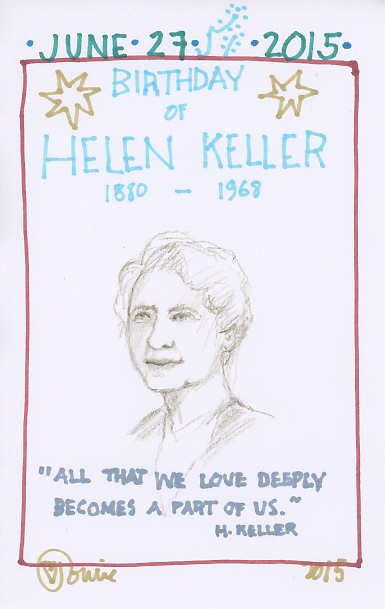 · JUNE · 27 · 2015 ·
BIRTHDAY
OF
HELEN KELLER
1880 – 1968
"ALL THAT WE LOVE DEEPLY
BECOMES A PART OF US."
H. KELLER
2015